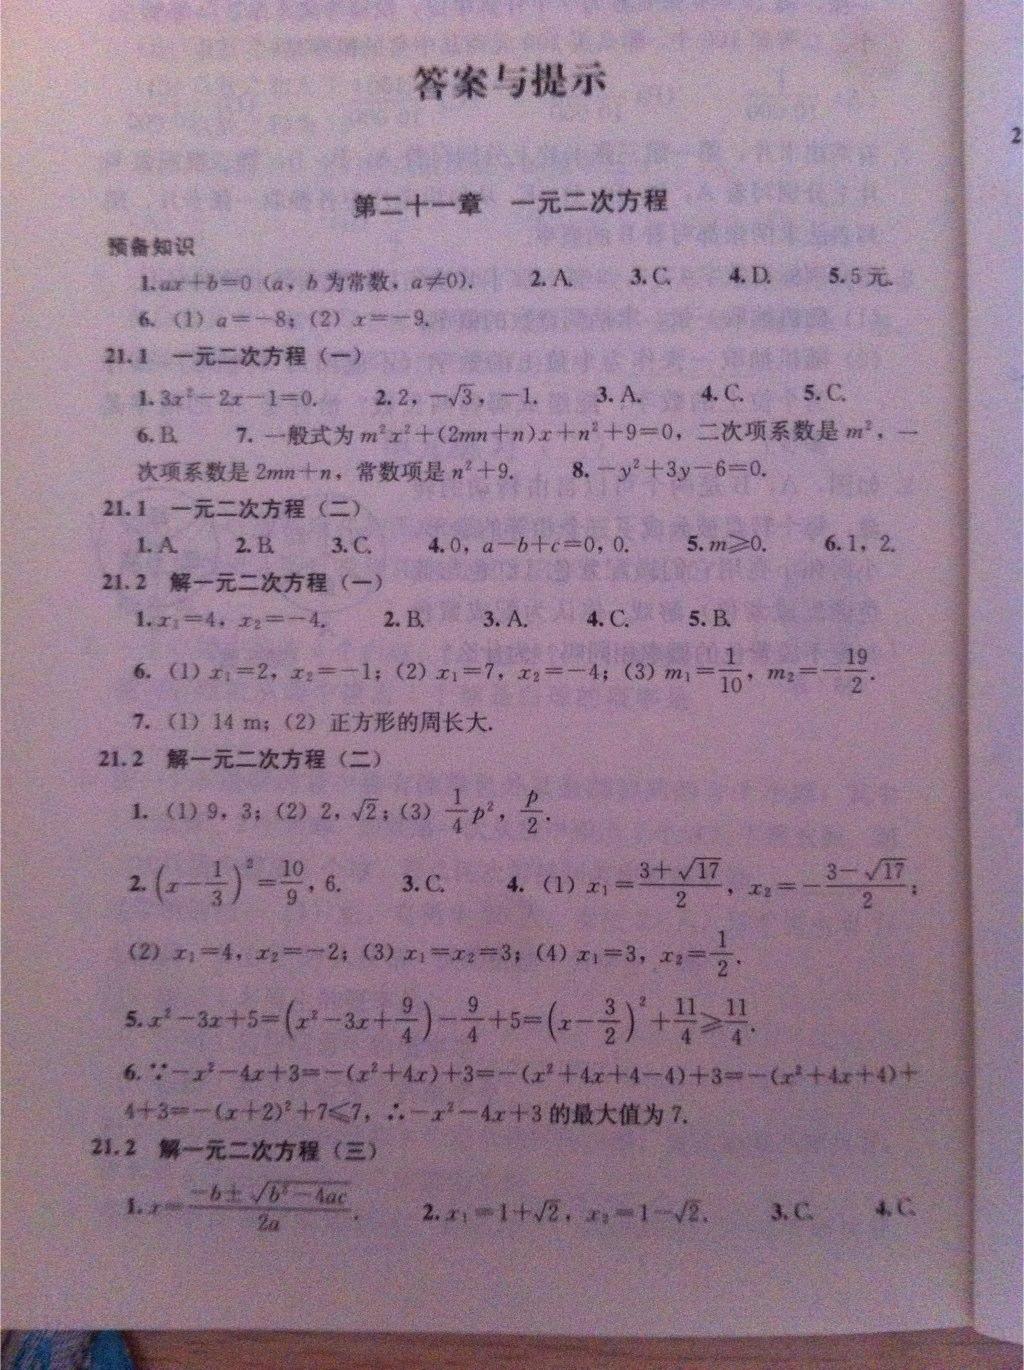 答案与提示
第二十一章 一元二次方程
预备知识
1. ax+b=0 (a, b 为常数, a≠0). 2. A. 3. C. 4. D. 5. 5 元.
6. (1) a=-8; (2) x=-9.
21.1 一元二次方程（一）
1. 3x²-2x-1=0. 2. 2, -√3, -1. 3. A. 4. C. 5. C.
6. B. 7. 一般式为 m²x²+(2mn+n)x+n²+9=0, 二次项系数是 m², 一
次项系数是 2mn+n, 常数项是 n²+9. 8. -y²+3y-6=0.
21.1 一元二次方程（二）
1. A. 2. B. 3. C. 4. 0, a-b+c=0, 0. 5. m⩾0. 6. 1, 2.
21.2 解一元二次方程（一）
1. x₁=4, x₂=-4. 2. B. 3. A. 4. C. 5. B.
6. (1) x₁=2, x₂=-1; (2) x₁=7, x₂=-4; (3) m₁=1/10, m₂=-19/2.
7. (1) 14 m; (2) 正方形的周长大.
21.2 解一元二次方程（二）
1. (1) 9, 3; (2) 2, √2; (3) 1/4 p², p/2.
2. (x-1/3)²=10/9, 6. 3. C. 4. (1) x₁=(3+√17)/2, x₂=-(3-√17)/2;
(2) x₁=4, x₂=-2; (3) x₁=x₂=3; (4) x₁=3, x₂=1/2.
5. x²-3x+5=(x²-3x+9/4)-9/4+5=(x-3/2)²+11/4⩾11/4.
6. ∵-x²-4x+3=-(x²+4x)+3=-(x²+4x+4-4)+3=-(x²+4x+4)+
4+3=-(x+2)²+7⩽7, ∴-x²-4x+3 的最大值为 7.
21.2 解一元二次方程（三）
1. x=(-b±√(b²-4ac))/2a. 2. x₁=1+√2, x₂=1-√2. 3. C. 4. C.
2